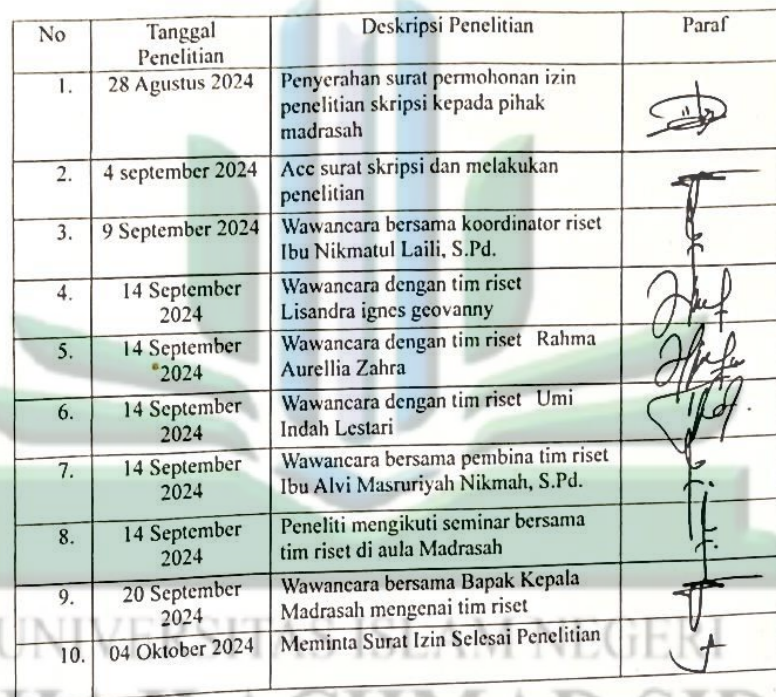 No Tanggal Penelitian Deskripsi Penelitian Paraf
1. 28 Agustus 2024 Penyerahan surat permohonan izin
penelitian skripsi kepada pihak
madrasah
2. 4 september 2024 Acc surat skripsi dan melakukan
penelitian
3. 9 September 2024 Wawancara bersama koordinator riset
Ibu Nikmatul Laili, S.Pd.
4. 14 September 2024 Wawancara dengan tim riset
Lisandra ignes geovanny
5. 14 September 2024 Wawancara dengan tim riset Rahma
Aurellia Zahra
6. 14 September 2024 Wawancara dengan tim riset Umi
Indah Lestari
7. 14 September 2024 Wawancara bersama pembina tim riset
Ibu Alvi Masruriyah Nikmah, S.Pd.
8. 14 September 2024 Peneliti mengikuti seminar bersama
tim riset di aula Madrasah
9. 20 September 2024 Wawancara bersama Bapak Kepala
Madrasah mengenai tim riset
10. 04 Oktober 2024 Meminta Surat Izin Selesai Penelitian
UNIVERSITAS ISLAM NEGERI